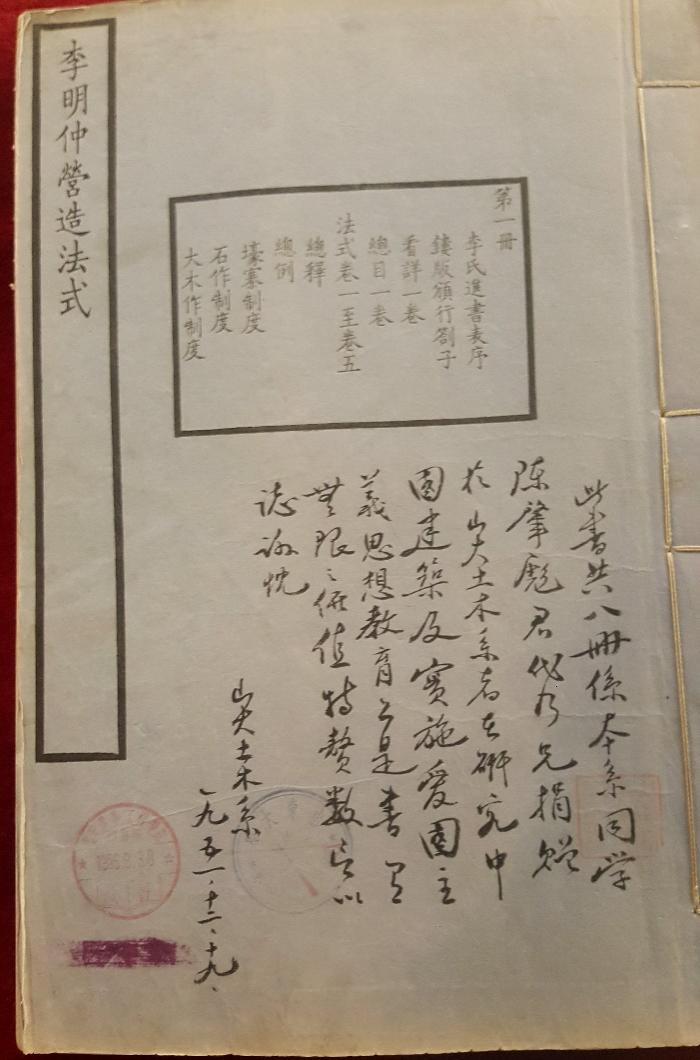 李明仲營造法式
第一冊
李氏進書表序
鏤版頒行劄子
看詳一卷
總目一卷
法式卷一至卷五
總釋
總例
壕寨制度
石作制度
大木作制度
此書共八冊係本系同学
陈肇彪君代乃兄捐贈
於山大土木系者在研究中
國建築及實施愛國主
義思想教育上是書有
無限之價值特贅數言以
誌謝忱
山大土木系
一九五一·十二·十九·